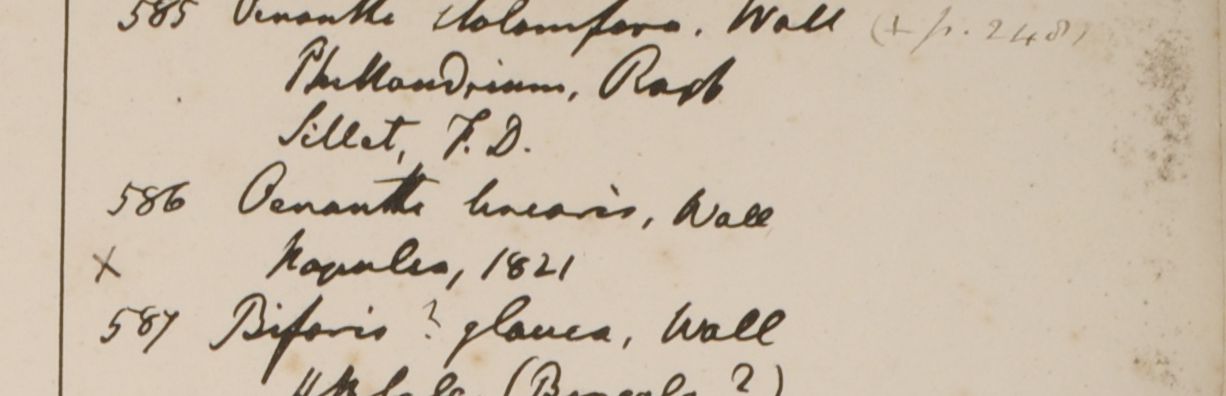 585 Oenanthe stolonifera, Wall (+ p. 248)
Phellandrium, Roxb
Sillet, F.D.
586 Oenanthe linearis, Wall
x Napalia, 1821
587 Biforis ? glauca, Wall
(Bengala ?)